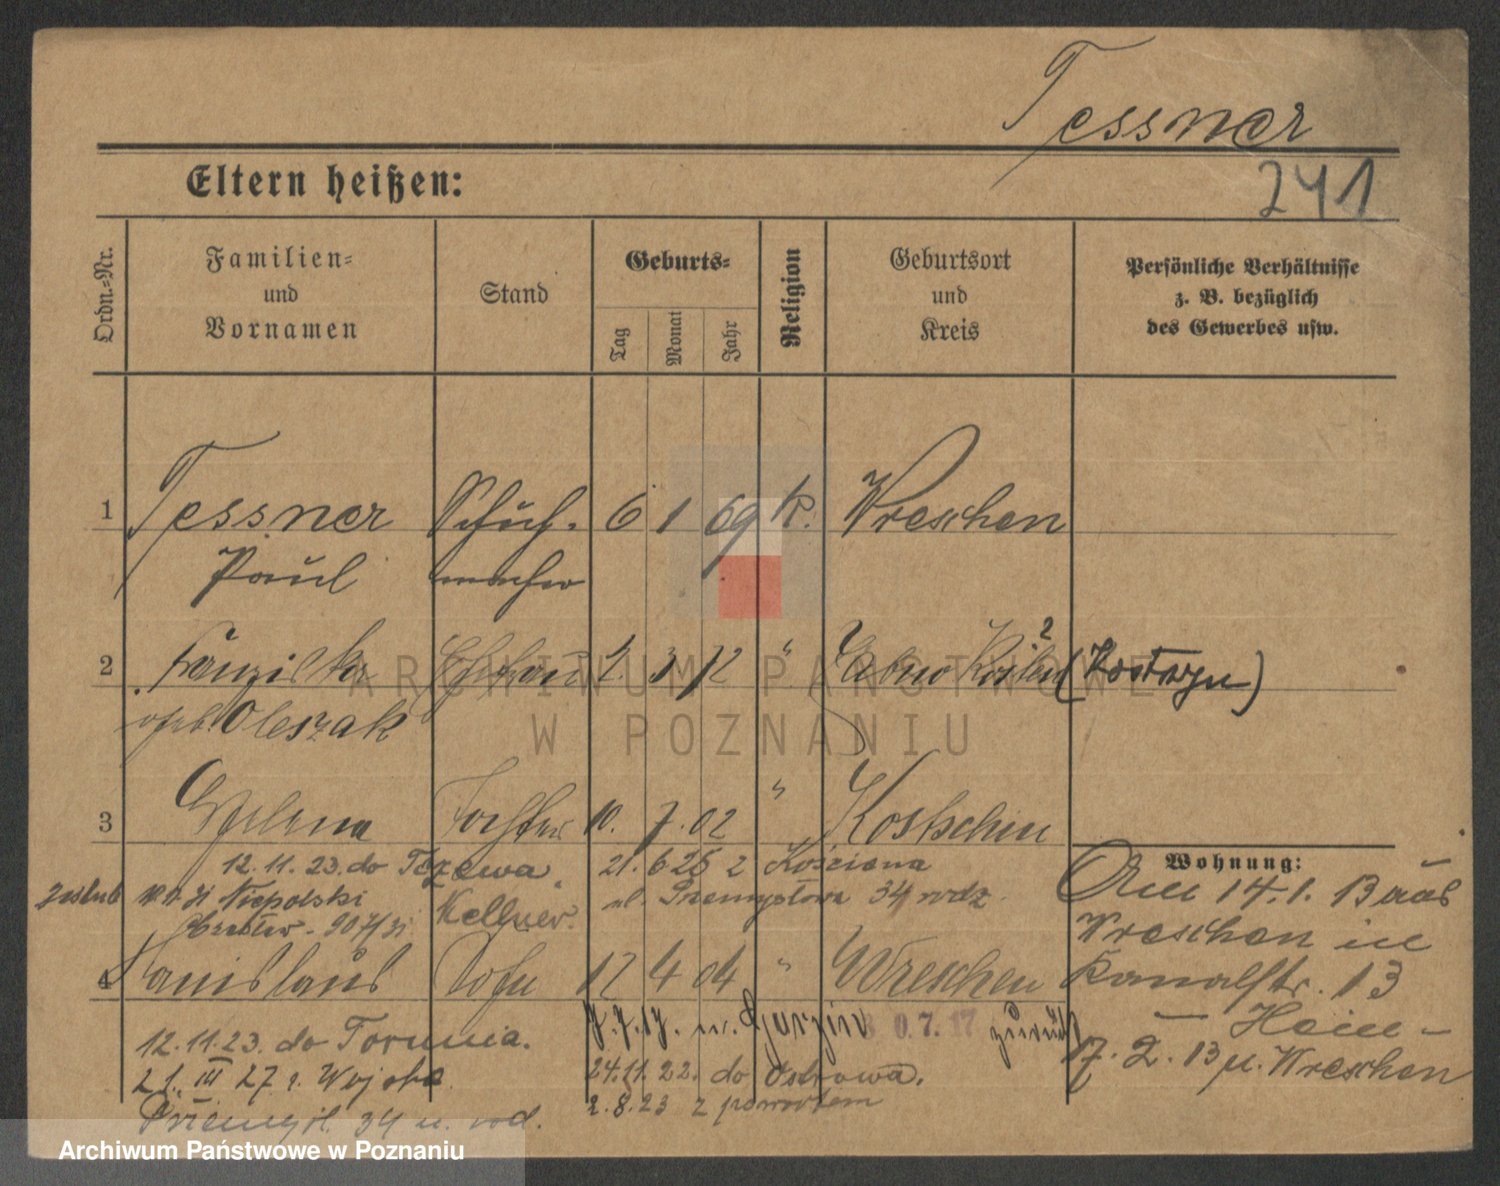 Tessner
241
Eltern heißen:
Ordn.-Nr.
Familien-
und
Vornamen
Stand
Geburts-
Tag
Monat
Jahr
Religion
Geburtsort
und
Kreis
Persönliche Verhältnisse
z. B. bezüglich
des Gewerbes usw.
1 Tessner Schuh- 6 1 69 K. Wreschen
Paul macher
2 Franziska Ehefrau 2. 3 72 " (Kostrzyn)
geb. Oleszak
3 Helena Tochter 10. 7. 02 " Kostschin
12.11.23. do Tczewa 21. 6 25 z Kościana
Niepolski Kellner. ul. Przemysłowa 34 rodz.
4 Stanislaus Sohn 17 4 04 " Wreschen
Wohnung:
Am 14.1.13 aus
Wreschen in
Kanalstr. 13
Heim-
17.2.13 n. Wreschen
7.7.17. n. 3 0.7.17 zurück
12.11.23. do Torunia.
24.11.22. do Ostrowa.
21. III 27 z Wojska
2.8.23 z powrotem
Przemysł. 34 u. rod.
ARCHIWUM PAŃSTWOWE
W POZNANIU
Archiwum Państwowe w Poznaniu